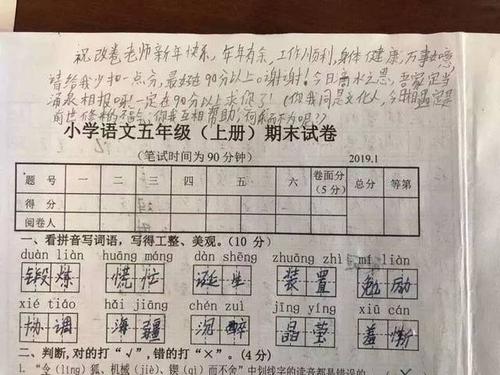 祝改卷老师新年快乐,年年有余,工作顺利,身体健康,万事如意
请给我少扣一点分,最好在90分以上。谢谢!今日滴水之恩,吾家定当
涌泉相报哦!一定在90分以上求你了!(你我同是文化人,今相遇定是
前世修来的,你我互相帮助,何乐而不为呢?)
小学语文五年级(上册)期末试卷
(笔试时间为90分钟) 2019.1
题号 一 二 三 四 五 六 卷面分(5分) 总分 等第
得分
阅卷人
一、看拼音写词语,写得工整、美观。(10分)
duàn liàn huāng máng dàn shēng zhuāng zhì mí liàn
锻炼 慌忙 诞生 装置 勉励
xié tiáo hǎi jiāng chén zuì jīng yíng xiū cán
协调 海疆 沉醉 晶莹 羞惭
二、判断,对的打“√”,错的打“×”。(4分)
1. “令(líng)狐、机械(jiè)、锲(qì)而不舍”中划线字的读音都是错误的。